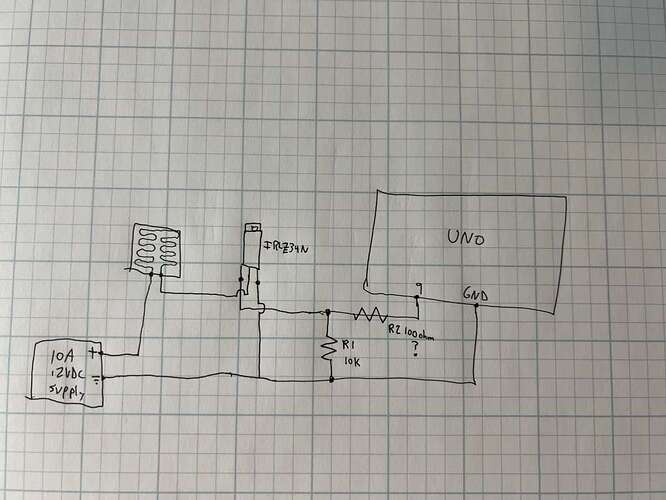 UNO
IRLZ34N
9
GND
R2 100ohm
?
R1
10K
10A
12VDC
supply
+